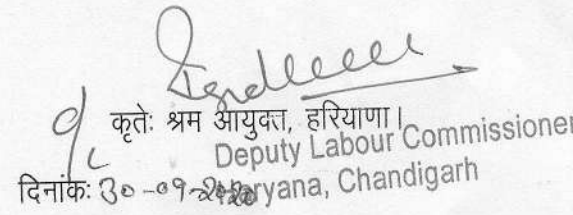 कृतेः श्रम आयुक्त, हरियाणा।
Deputy Labour Commissioner
दिनांकः 30-09-2020
Haryana, Chandigarh